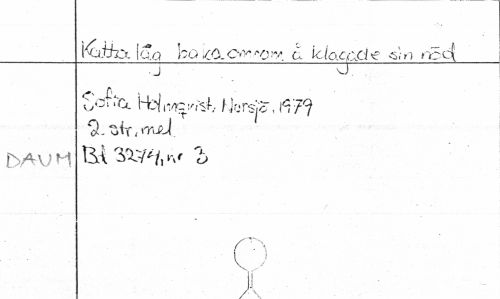 Katta låg baka omnom å klagade sin nöd
Sofia Holmqvist, Norsjö, 1979
2 str, mel.
DAUM Bd 3274, nr 3